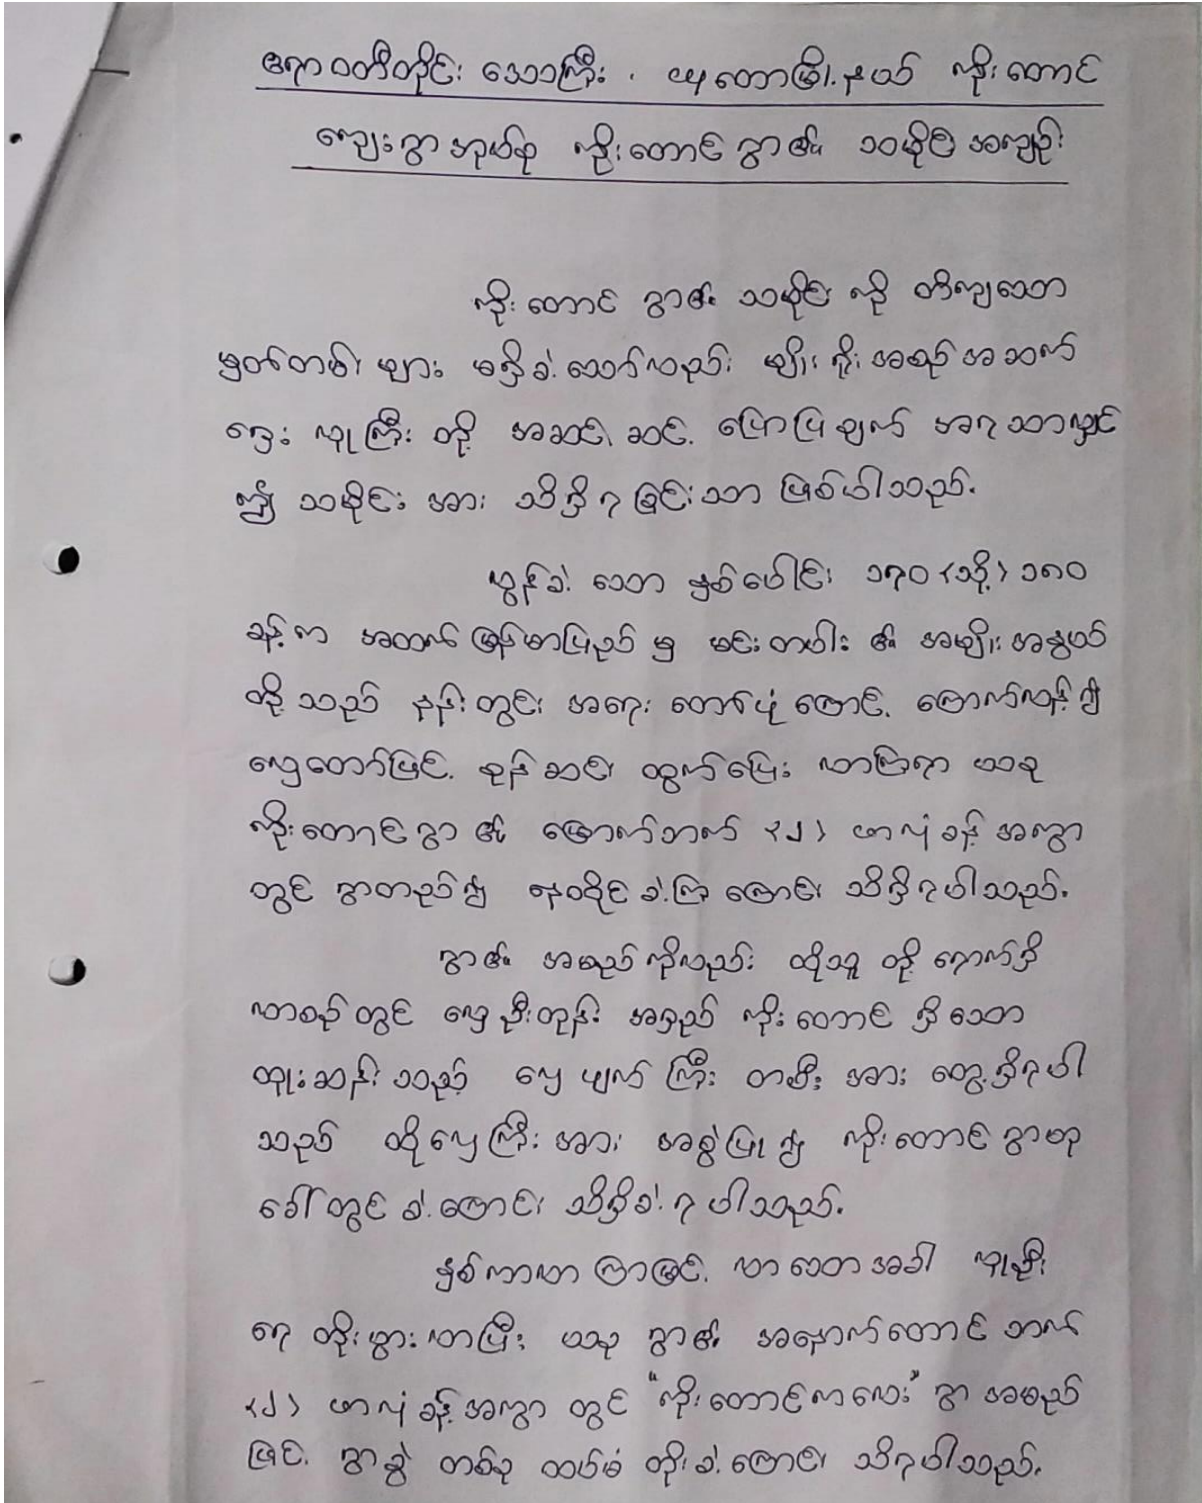 ဧရာဝတီတိုင်း ဒေသကြီး ၊ ဟင်္သာတမြို့နယ် ကိုးတောင်
ကျေးရွာအုပ်စု ကိုးတောင်ရွာ၏ သမိုင်းအကျဉ်း
ကိုးတောင် ရွာ၏ သမိုင်း ကို တိကျသော
မှတ်တမ်း များ မရှိခဲ့သော်လည်း မျိုးရိုးအစဉ်အဆက်
ဘွေး လူကြီး တို့ အဆင့်ဆင့် ပြောပြချက် အရသာလျှင်
ဤ သမိုင်း အား သိရှိရခြင်းသာ ဖြစ်ပါသည်။
လွန်ခဲ့ သော နှစ်ပေါင်း ၁၇၀ (သို့) ၁၈၀
ခန့်က အထက်မြန်မာပြည် မှ မင်းတပါး ၏ အမျိုးအနွယ်
တို့သည် နန်းတွင်း အရေး တော်ပုံကြောင့် ကြောက်လန့်၍
လှေတော်ဖြင့် စုန်ဆင်း ထွက်ပြေး လာကြရာ ယခု
ကိုးတောင်ရွာ ၏ မြောက်ဘက် (၂) ဖာလုံခန့် အကွာ
တွင် ရွာတည်၍ နေထိုင်ခဲ့ကြ ကြောင်း သိရှိရပါသည်။
ရွာ၏ အမည်ကိုလည်း ထိုသူ တို့ ရောက်ရှိ
လာစဉ်တွင် လှေဦးတုန်း အရှည် ကိုးတောင် ရှိသော
ထူးဆန်းသည့် လှေပျက်ကြီး တစီး အား တွေ့ရှိရပါ
သည် ထိုလှေကြီး အား အစွဲပြု၍ ကိုးတောင်ရွာဟု
ခေါ်တွင်ခဲ့ကြောင်း သိရှိခဲ့ရပါသည်။
နှစ်ကာလ ကြာမြင့် လာသောအခါ လူဦး
ရေ တိုးပွားလာပြီး ယခု ရွာ၏ အနောက်တောင်ဘက်
(၂) ဖာလုံခန့်အကွာ တွင် "ကိုးတောင်ကလေး" ရွာ အမည်
ဖြင့် ရွာခွဲ တစ်ခု ထပ်မံ တိုးခဲ့ကြောင်း သိရပါသည်။